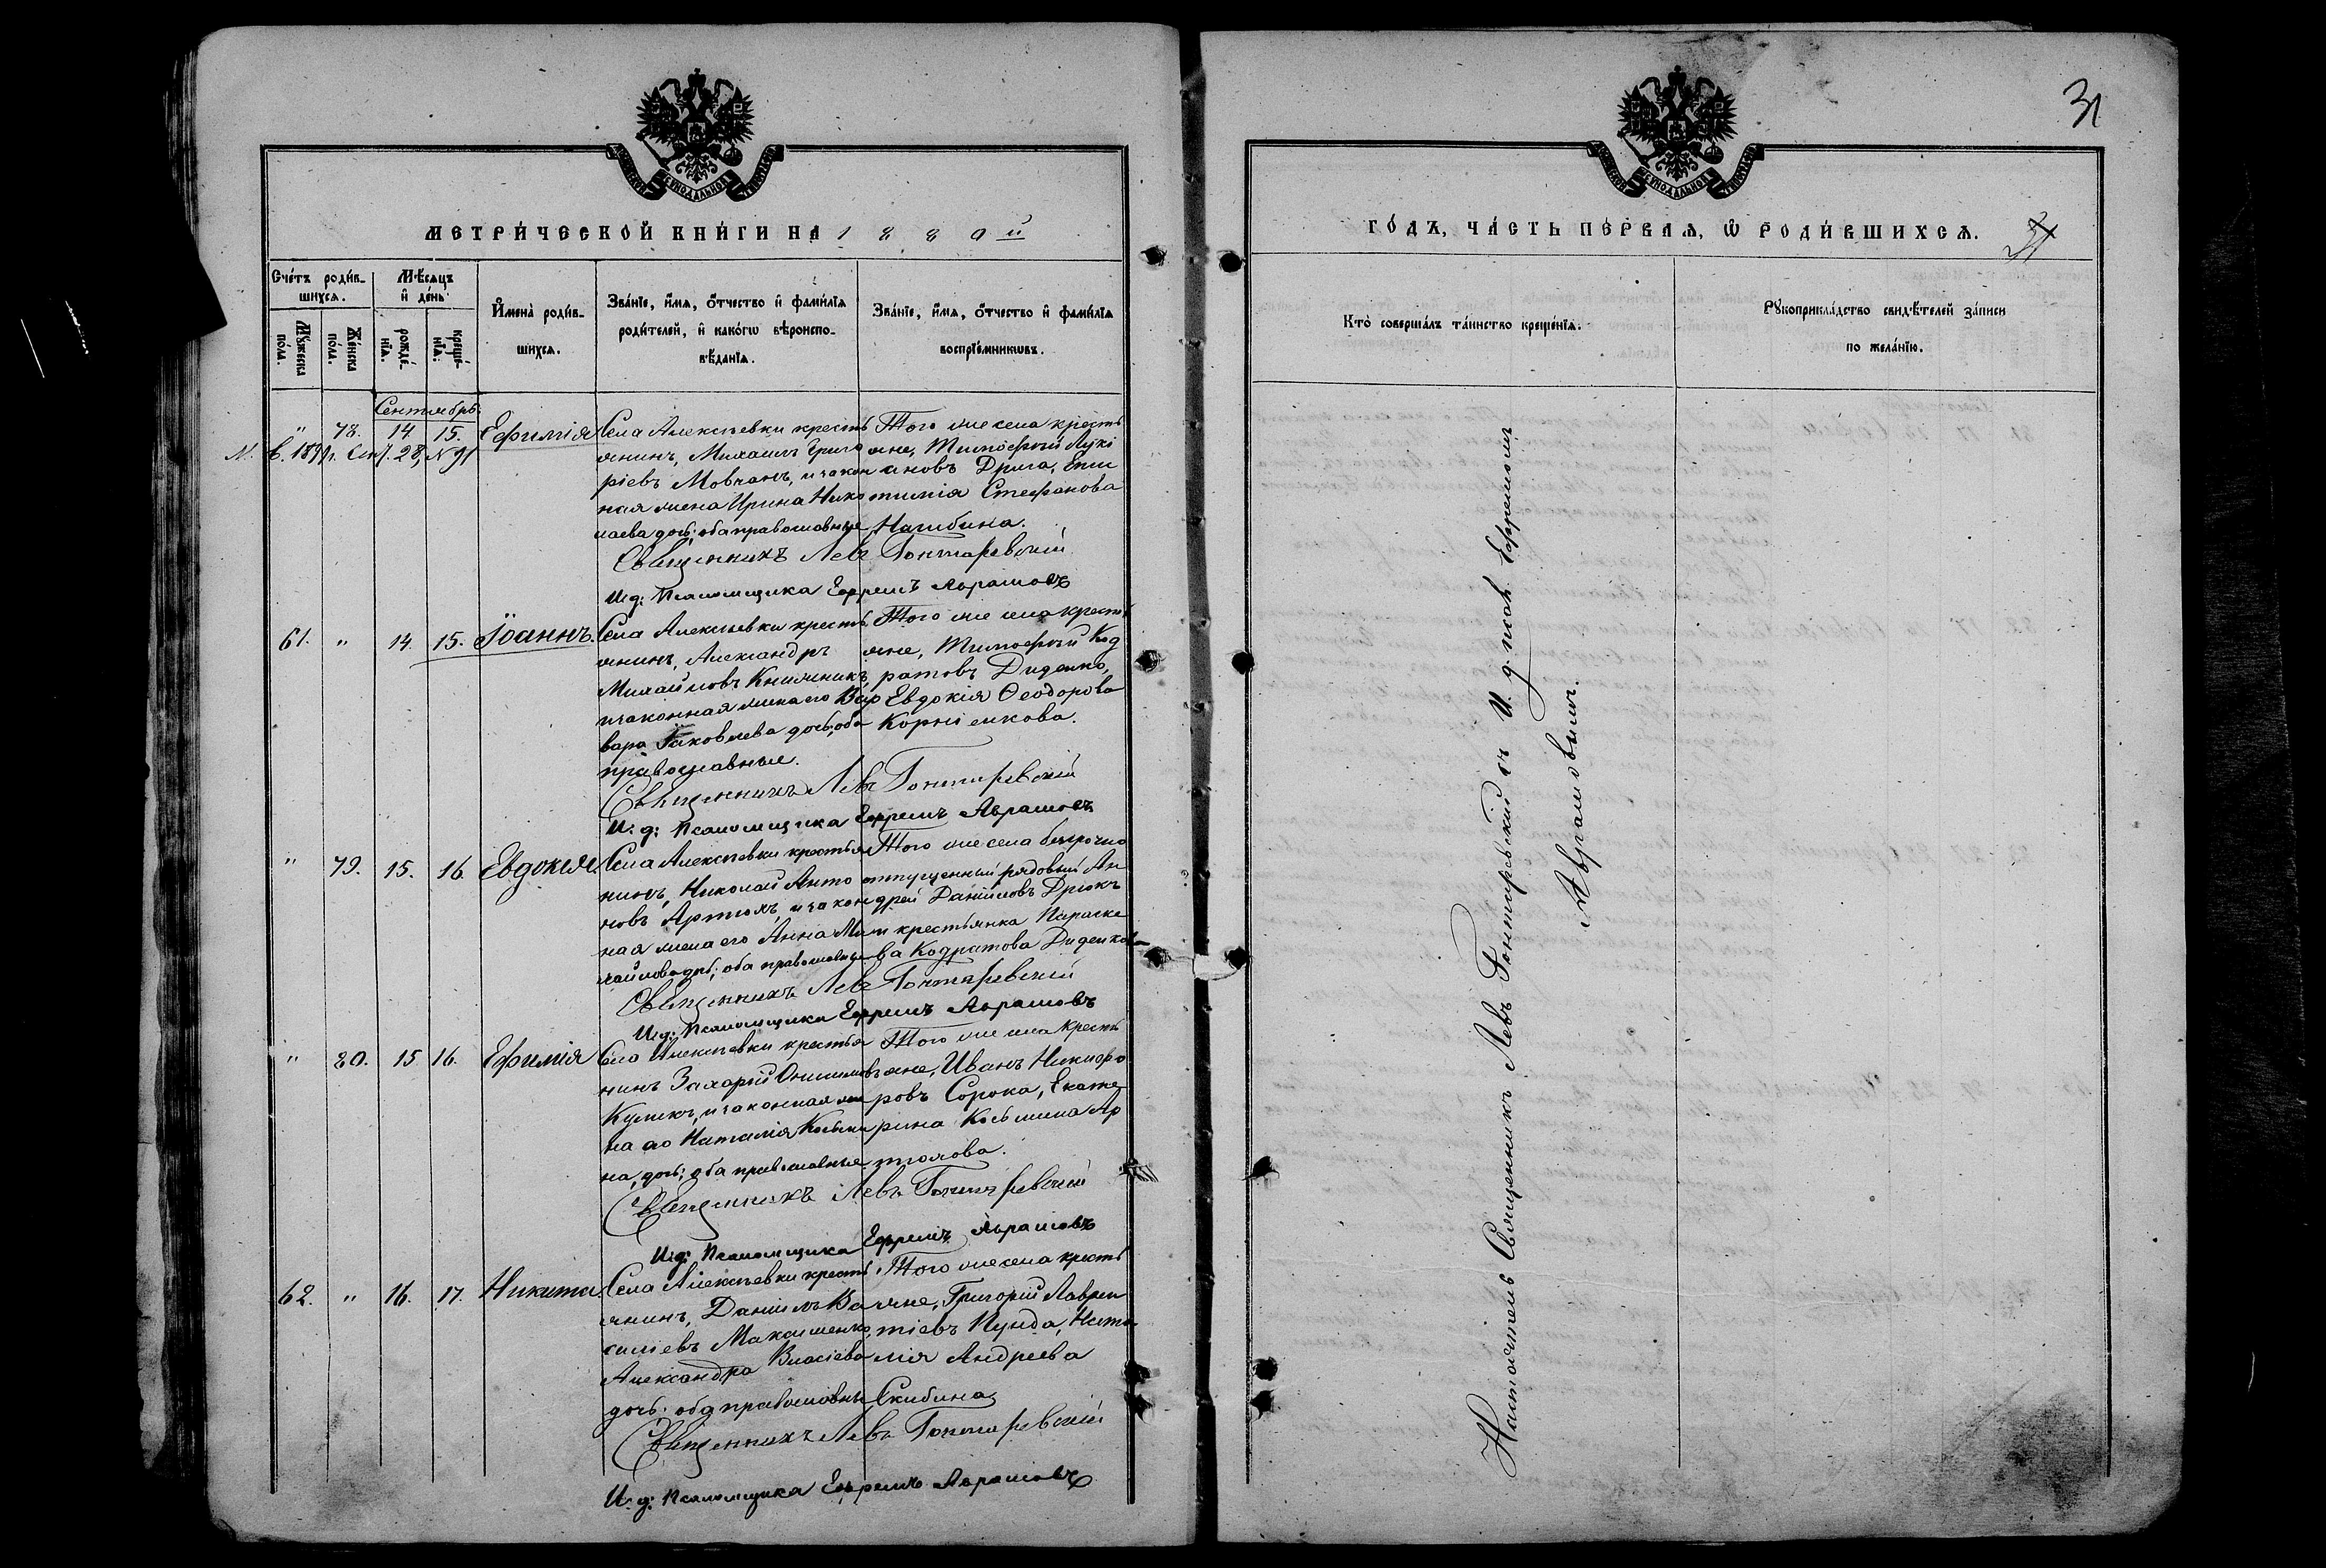 МЕТРИ́ЧЕСКОЙ КНИ́ГИ НА 1880й
Сче́тъ роди́в-
шихся.
Мѣ́сяцъ
и҆ де́нь
Мꙋ́жеска
по́ла.
Же́нска
по́ла.
рожде́-
нїѧ.
креще́-
нїѧ.
И҆мена̀ роди́в-
шихсѧ.
Зва́нїе, и҆́мѧ, ѻ҆́тчество и҆ фами́лїѧ
роди́телей, и҆ како́гѡ вѣроиспо-
вѣ́данїѧ.
Зва́нїе, и҆́мѧ, ѻ҆́тчество и҆ фами́лїѧ
воспрїе́мникѡвъ.
Сентябрь
" 78. 14 15. Ефимія
Села Алексѣевки кресть
янинъ, Михаилъ Григо
ріевъ Мовчанъ, и закон
ная жена Ирина Нико
лаева дочь; оба православные
Того же села кресть
яне, Тимофей Лукі
яновъ Дрига, Епи
Стефанова
Священникъ Левъ Гонтаревскій
И.д: Псаломщика Ефремъ Аврамовъ
61. " 14. 15. Іоаннъ.
Села Алексѣевки кресть
янинъ, Александръ
Михайловъ Княжникъ,
и законная жена его Вар
вара Іаковлева дочь, оба
православные.
Того же села кресть
яне, Тимофей Код
ратовъ Диденко,
Евдокія Ѳеодорова
Корніенкова.
Священникъ Левъ Гонтаревскій
И.д: Псаломщика Ефремъ Аврамовъ
" 79. 15. 16. Евдокія.
Села Алексѣевки крестья
нинъ, Николай Анто
новъ Артюхъ, и закон
ная жена его Анна Ми
хайлова дочь; оба православные
Того же села безсрочно
отпущенный рядовый Ан
дрей Даніиловъ Дрюкъ
и крестьянка Параске
ва Кодратова Диденкова
Священникъ Левъ Гонтаревскій
И.д: Псаломщика Ефремъ Аврамовъ
" 80. 15 16. Ефимія
Села Алексѣевки крестья
нинъ Захарій Онисимовъ
и законная же
на его Наталія Козьми
на, дочь; оба православные
Того же села кресть
яне, Иванъ Никифо
ровъ Сорока, Екате
рина Козьмина Ар
тюхова.
Священникъ Левъ Гонтаревскій
И.д: Псаломщика Ефремъ Аврамовъ
62. " 16. 17. Никита.
Села Алексѣевки кресть
янинъ, Даніилъ Ва
силіевъ Максименко,
Александра Власіева
дочь; оба православные
Того же села кресть
яне, Григорій Лаврен
тіевъ Пунда, Ната
лія Андреева
Скибина
Священникъ Левъ Гонтаревскій
И.д: Псаломщика Ефремъ Аврамовъ
31
ГО́ДЪ, ЧА́СТЬ ПЕ́РВАѦ, Ѡ҆ РОДИ́ВШИХСѦ.
31
Кто̀ соверша́лъ та́инство креще́нїѧ.
Рꙋкоприкла́дство свидѣ́телей за́писи
по жела́нїю.
Настоятель Священникъ Левъ Гонтаревскій съ И. д. псал. Ефремомъ
Аврамовымъ.